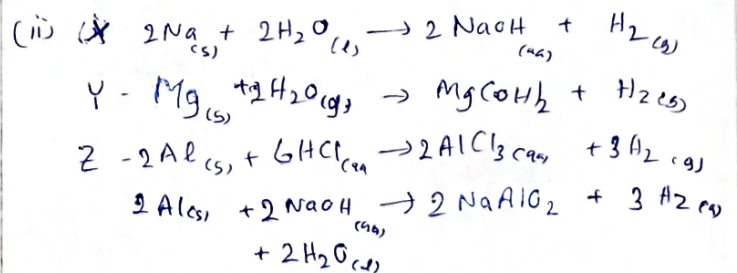 (ii) X 2Na(s) + 2H2O(l) → 2 NaOH(aq) + H2(g)
Y - Mg(s) + 2H2O(g) → Mg(OH)2 + H2(g)
Z - 2Al(s) + 6HCl(aq → 2AlCl3(aq) + 3H2(g)
2 Al(s) + 2 NaOH(aq) → 2 NaAlO2 + 3 H2(g)
+ 2H2O(l)